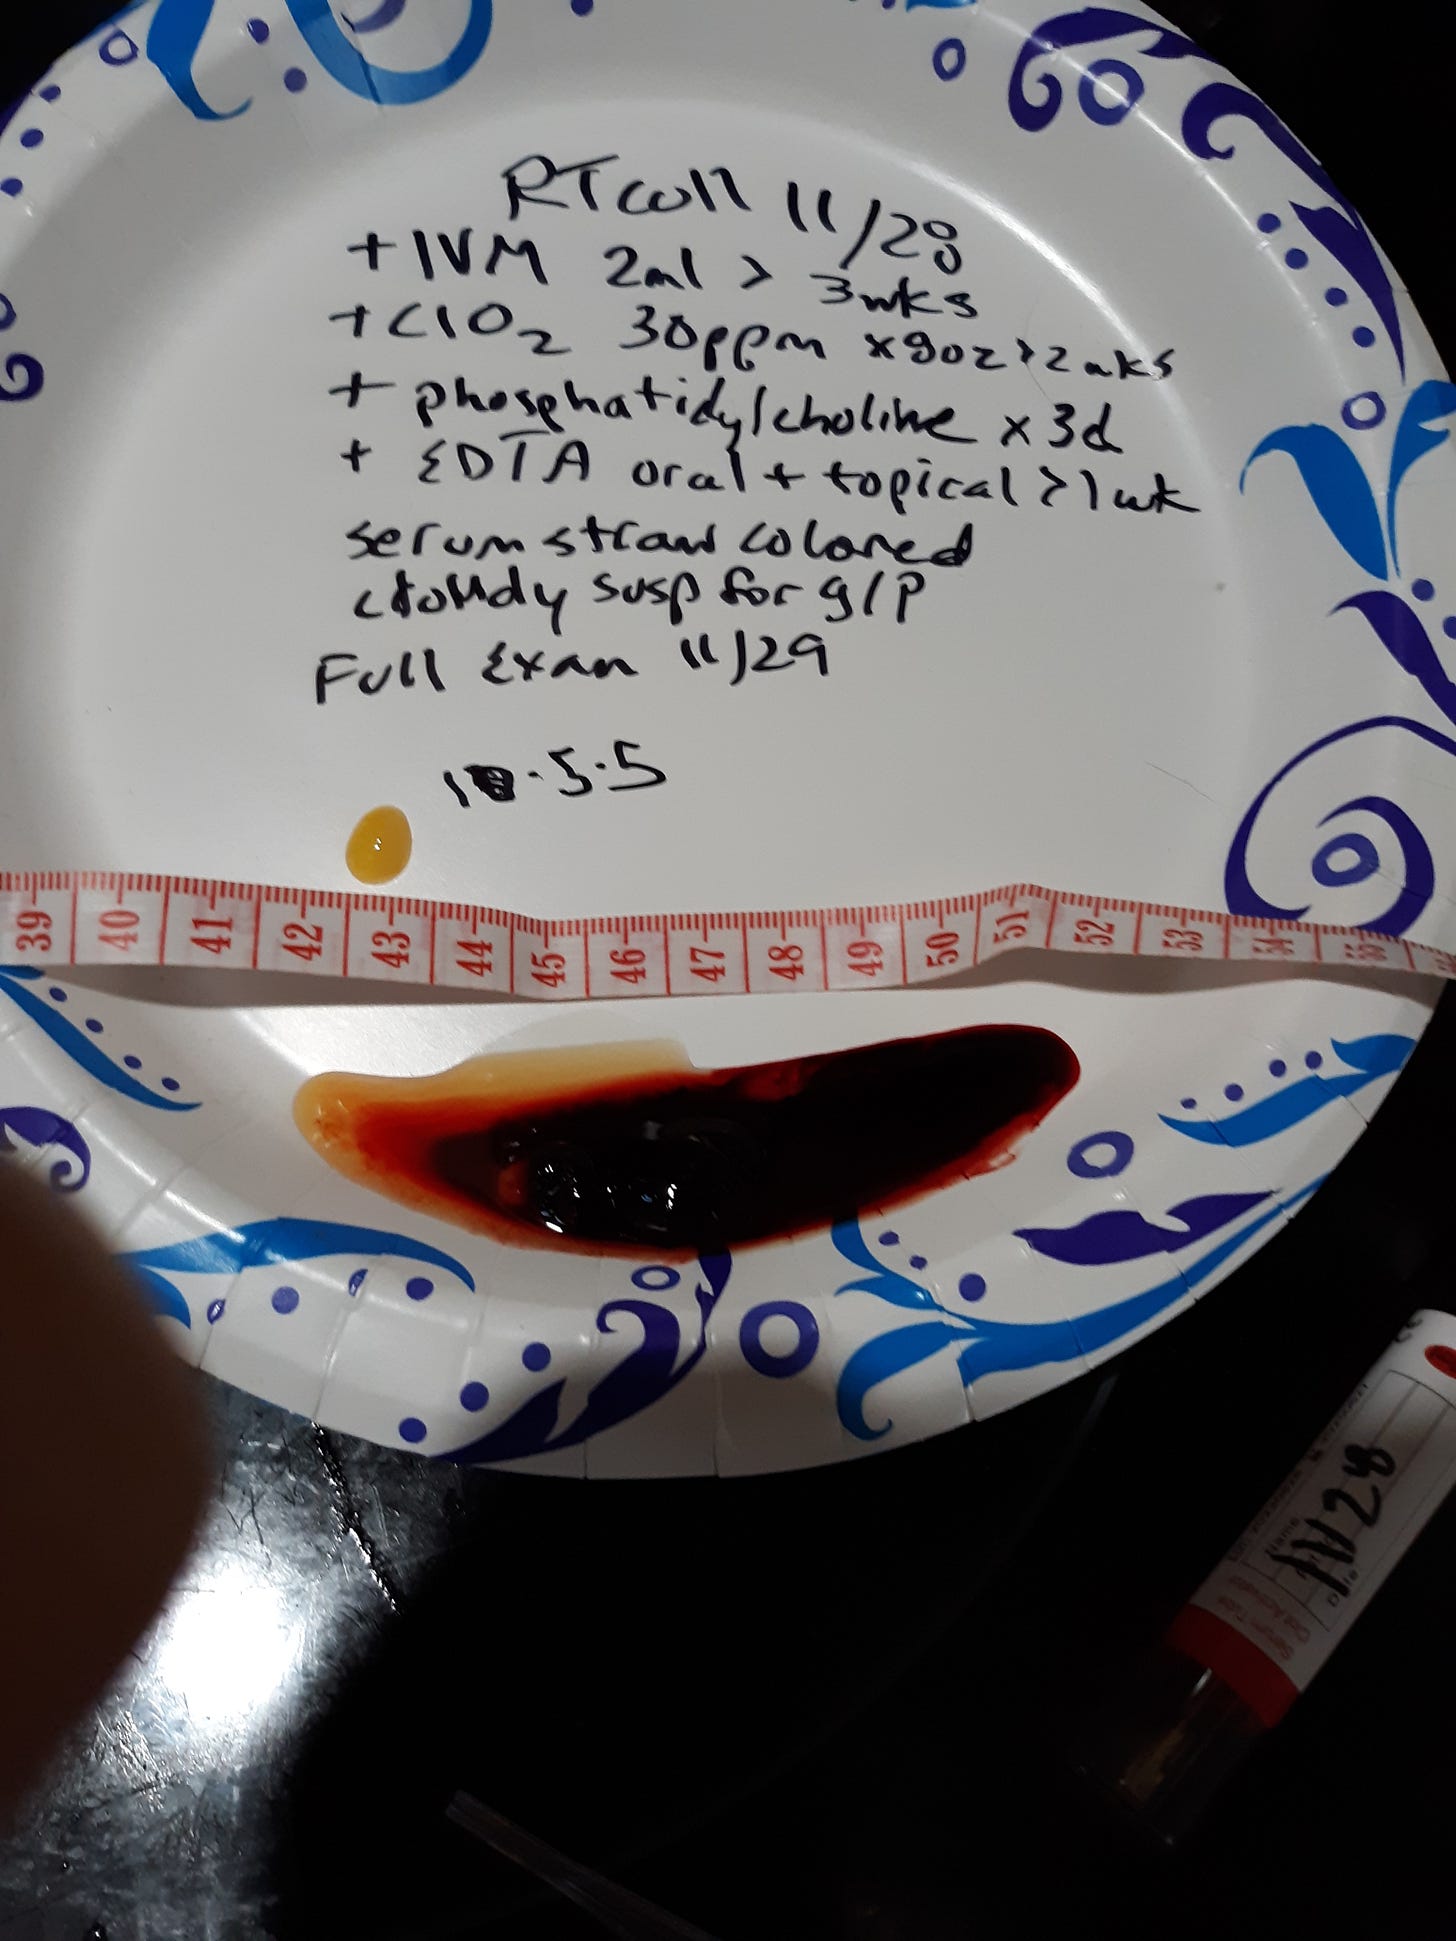 RT coll 11/28
+ IVM 2ml > 3wks
+ ClO2 30ppm x 90z > 2wks
+ phosphatidylcholine x 3d
+ EDTA oral + topical > 1wk
serum straw colored
cloudy susp for g/p
Full Exam 11/29
.5.5
39 40 41 42 43 44 45 46 47 48 49 50 51 52 53 54 55
11/28
Name